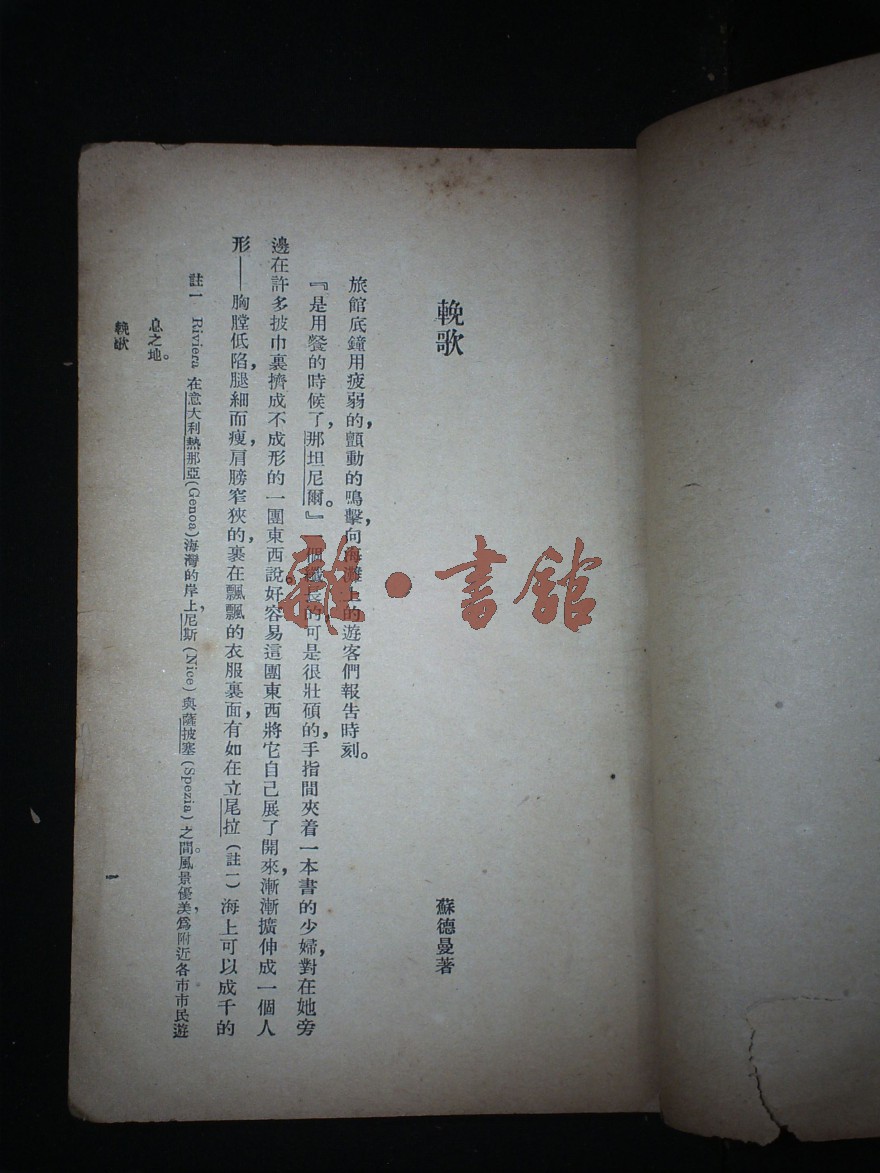 輓歌
蘇德曼著
旅館底鐘用疲弱的，顫動的鳴擊，向海灘上的遊客們報告時刻。
『是用餐的時候了，那坦尼爾。』一個纖長的，可是很壯碩的手指間夾着一本書的少婦，對在她旁
邊在許多披巾裏擠成不成形的一團東西說。好容易這團東西將它自己展了開來，漸漸擴伸成一個人
形——胸膛低陷，腿細而瘦，肩膀窄狹的，裹在飄飄的衣服裏面，有如在立尾拉（註一）海上可以成千的
註一 Riviera 在意大利熱那亞(Genoa)海灣的岸上，尼斯(Nice)與薩披塞(Spezia)之間。風景優美，爲附近各市市民遊
息之地。
輓歌
1
雜·書館